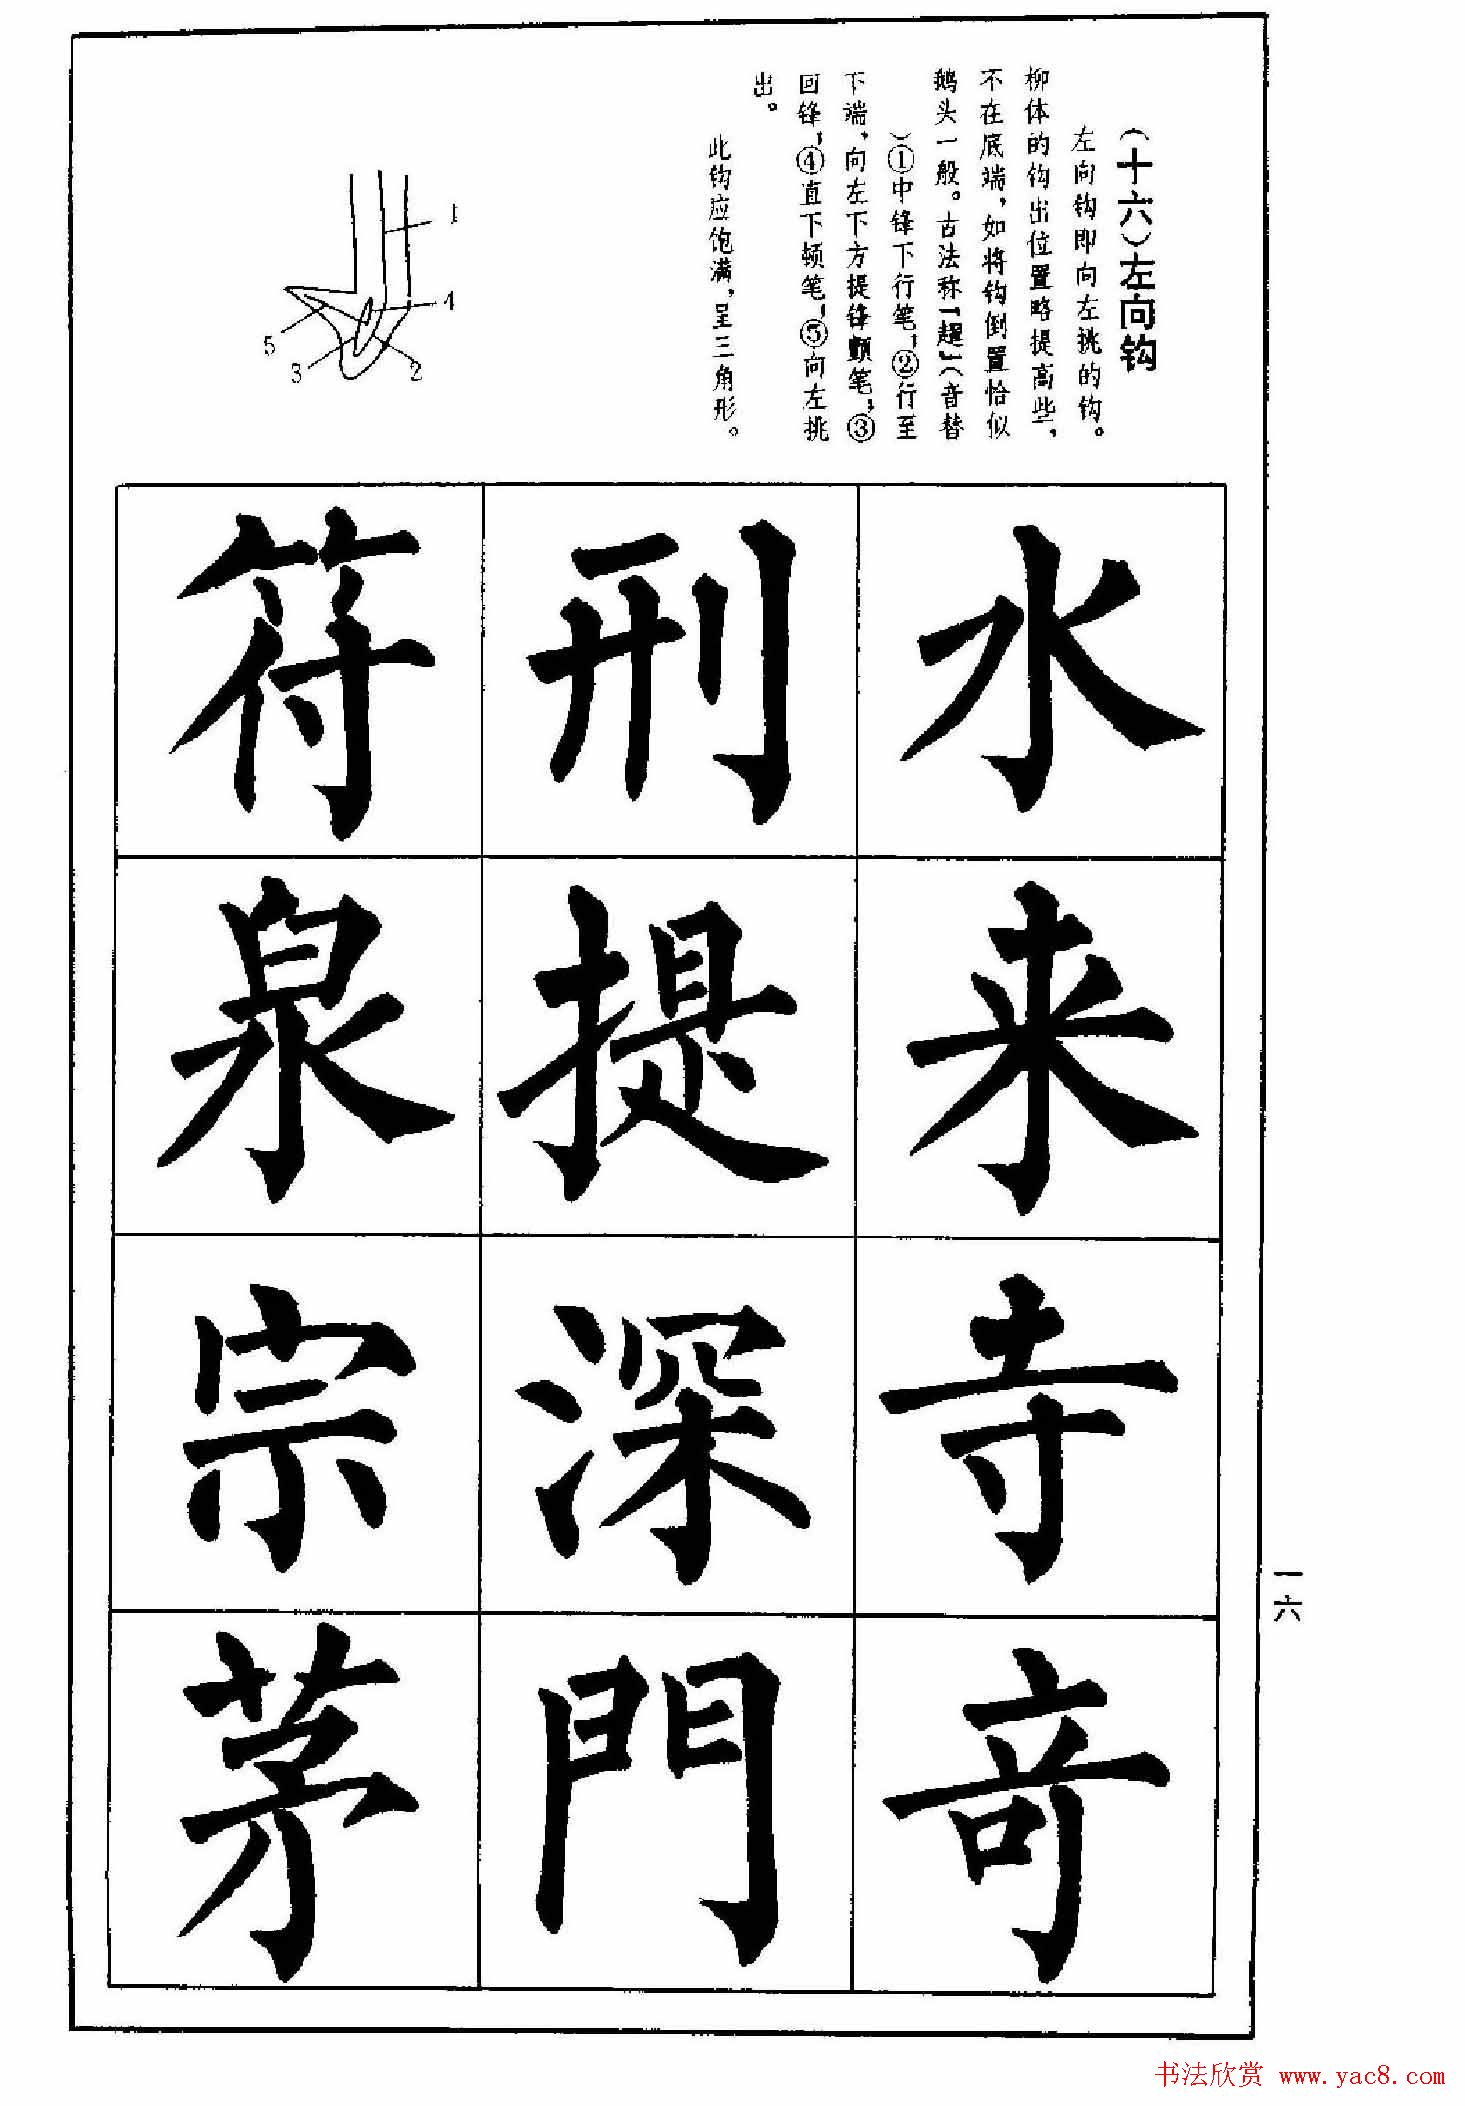 （十六）左向钩
左向钩即向左挑的钩。
柳体的钩出位置略提高些，
不在底端，如将钩倒置恰似
鹅头一般。古法称「趯」（音替
）①中锋下行笔；②行至
下端，向左下方提锋颤笔；③
回锋；④直下顿笔；⑤向左挑
出。
此钩应饱满，呈三角形。
1
4
2
3
5
水来寺竒
刑提深門
符泉宗茅
一六
书法欣赏 www.yac8.com